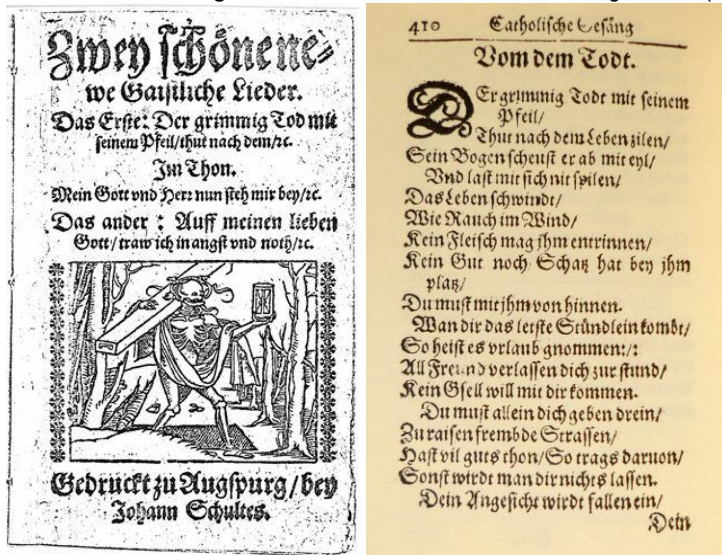 Zwey schönene-
we Gaistliche Lieder.
Das Erste: Der grimmig Tod mit
seinem Pfeil/thut nach dem/ꝛc.
Im Thon.
Mein Gott vnd Herr nun steh mir bey/ꝛc.
Das ander : Auff meinen lieben
Gott/ traw ich in angst vnd noth/ꝛc.
Gedruckt zu Augspurg/bey
Johann Schultes.
410 Catholische Gesäng
Vom dem Todt.
DEr grimmig Todt mit seinem
Pfeil/
Thut nach dem Leben zilen/
Sein Bogen scheust er ab mit eyl/
Vnd last mit sich nit spilen/
Das Leben schwindt/
Wie Rauch im Wind/
Kein Fleisch mag jhm entrinnen/
Kein Gut noch Schatz hat bey jhm
platz/
Du must mit jhm von hinnen.
Wan dir das letste Stündlein kombt/
So heist es vrlaub gnommen:/:
All Freund verlassen dich zur stund/
Kein Gsell will mit dir kommen.
Du must allein dich geben drein/
Zu raisen frembde Strassen/
Hast vil guts thon/So trags daruon/
Sonst wirdt man dir nichts lassen.
Dein Angesicht wirdt fallen ein/
Dein